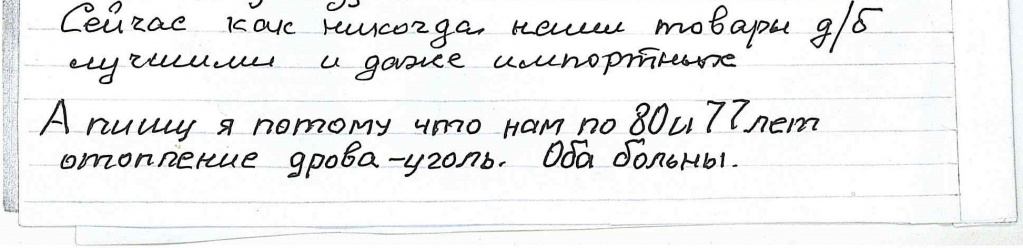 Сейчас как никогда наши товары д/б
лучшими и даже импортных
А пишу я потому что нам по 80 и 77 лет
отопление дрова-уголь. Оба больны.